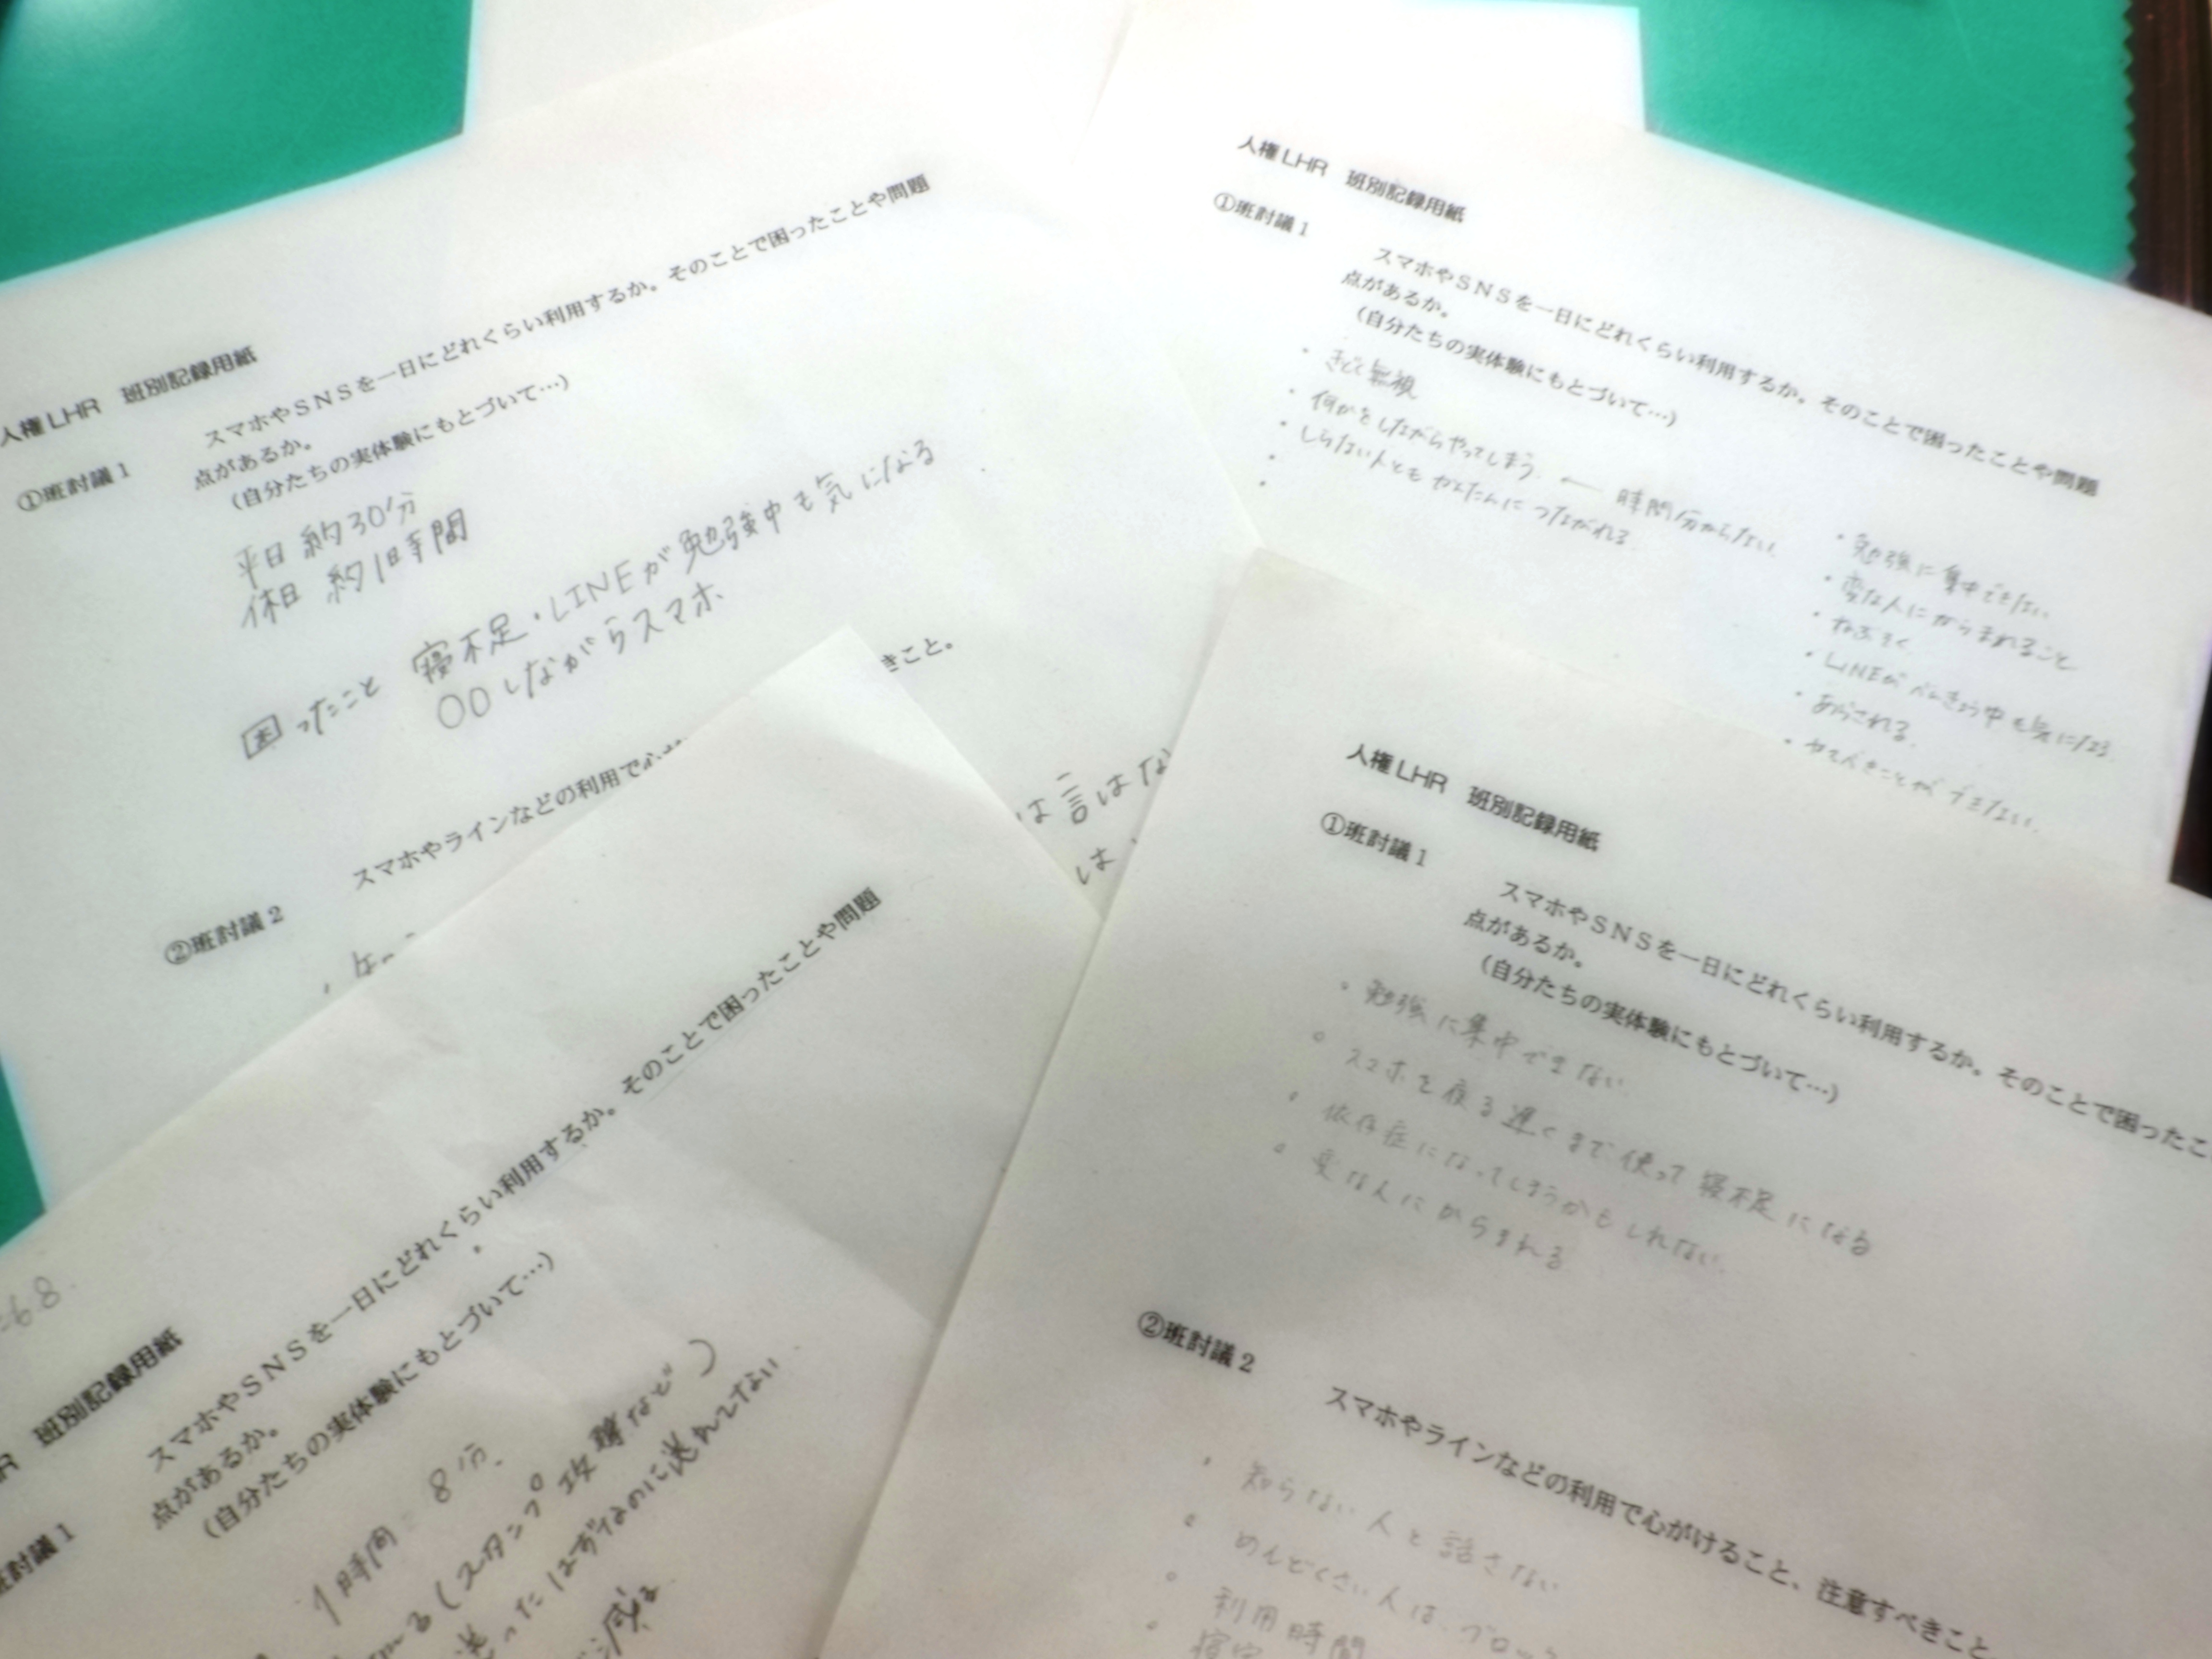 人権LHR 班別記録用紙
①班討議1
スマホやSNSを一日にどれくらい利用するか。そのことで困ったことや問題
点があるか。
(自分たちの実体験にもとづいて…)
平日 約30分
休日 約1時間
困ったこと 寝不足・LINEが勉強中も気になる
〇〇しながらスマホ
②班討議2
スマホやラインなどの利用で心
きこと。
は言はな
は
人権LHR 班別記録用紙
①班討議1
スマホやSNSを一日にどれくらい利用するか。そのことで困ったことや問題
点があるか。
(自分たちの実体験にもとづいて…)
・きどく無視
・何かをしながらやってしまう ← 時間分からない
・しらない人ともかんたんにつながれる
・勉強に集中できない
・変な人にからまれること
・ねぶそく
・LINEがべんきょう中も気になる
・あらされる
R 班別記録用紙
班討議1
スマホやSNSを一日にどれくらい利用するか。そのことで困ったことや問題
点があるか。
(自分たちの実体験にもとづいて…)
1時間 8分
(スタンプ攻撃など)
送ったはずなのに送れてない
減る
人権LHR 班別記録用紙
①班討議1
スマホやSNSを一日にどれくらい利用するか。そのことで困ったこ
点があるか。
(自分たちの実体験にもとづいて…)
・勉強に集中できない
・スマホを夜る遅くまで使って寝不足になる
・依存症になってしまうかもしれない
・変な人にからまれる
②班討議2
スマホやラインなどの利用で心がけること、注意すべきこと。
・知らない人と話さない
・めんどくさい人は、ブロック
・利用時間